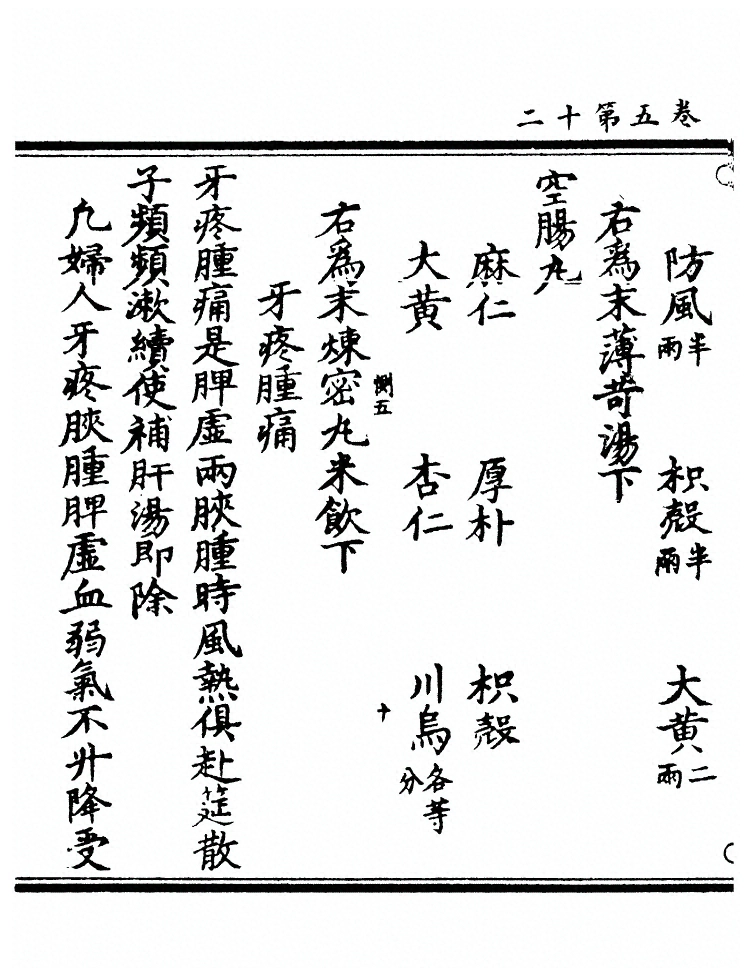 卷五第十二
防風半兩 枳殼半兩 大黄二兩
右爲末薄苛湯下
空腸丸
麻仁 厚朴 枳殼
大黄 杏仁 川烏各等分
側五 十
右爲末煉密丸米飲下
牙疼腫痛
牙疼腫痛是脾虛兩脥腫時風熱俱赴筵散
子頻頻漱續使補肝湯即除
凢婦人牙疼脥腫脾虛血弱氣不升降受